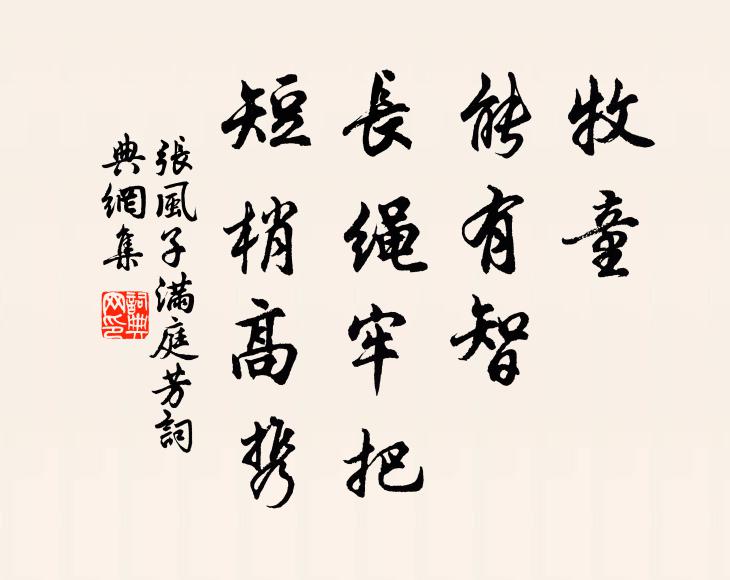 牧童
能有智
長绳牢把
短梢高携
張風子滿庭芳詞
典網集
詞典网印